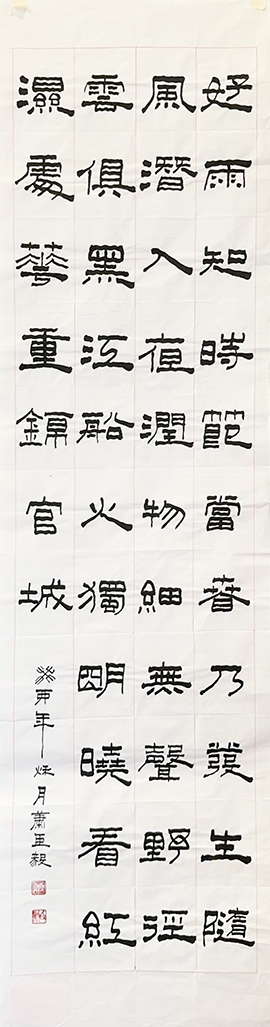 好雨知時節當春乃發生隨
風潛入夜潤物細無聲野徑
雲俱黑江船火獨明曉看紅
濕處華重錦官城
年月蕭玉毅